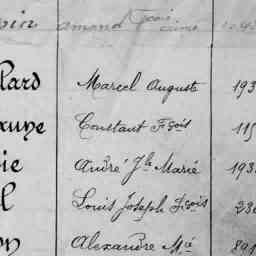 amand
lard Marcel Auguste 193
Constant Fçois 115
ie André Jh Marie 193
l Louis Joseph Fçois 230
on Alexandre Mie 891